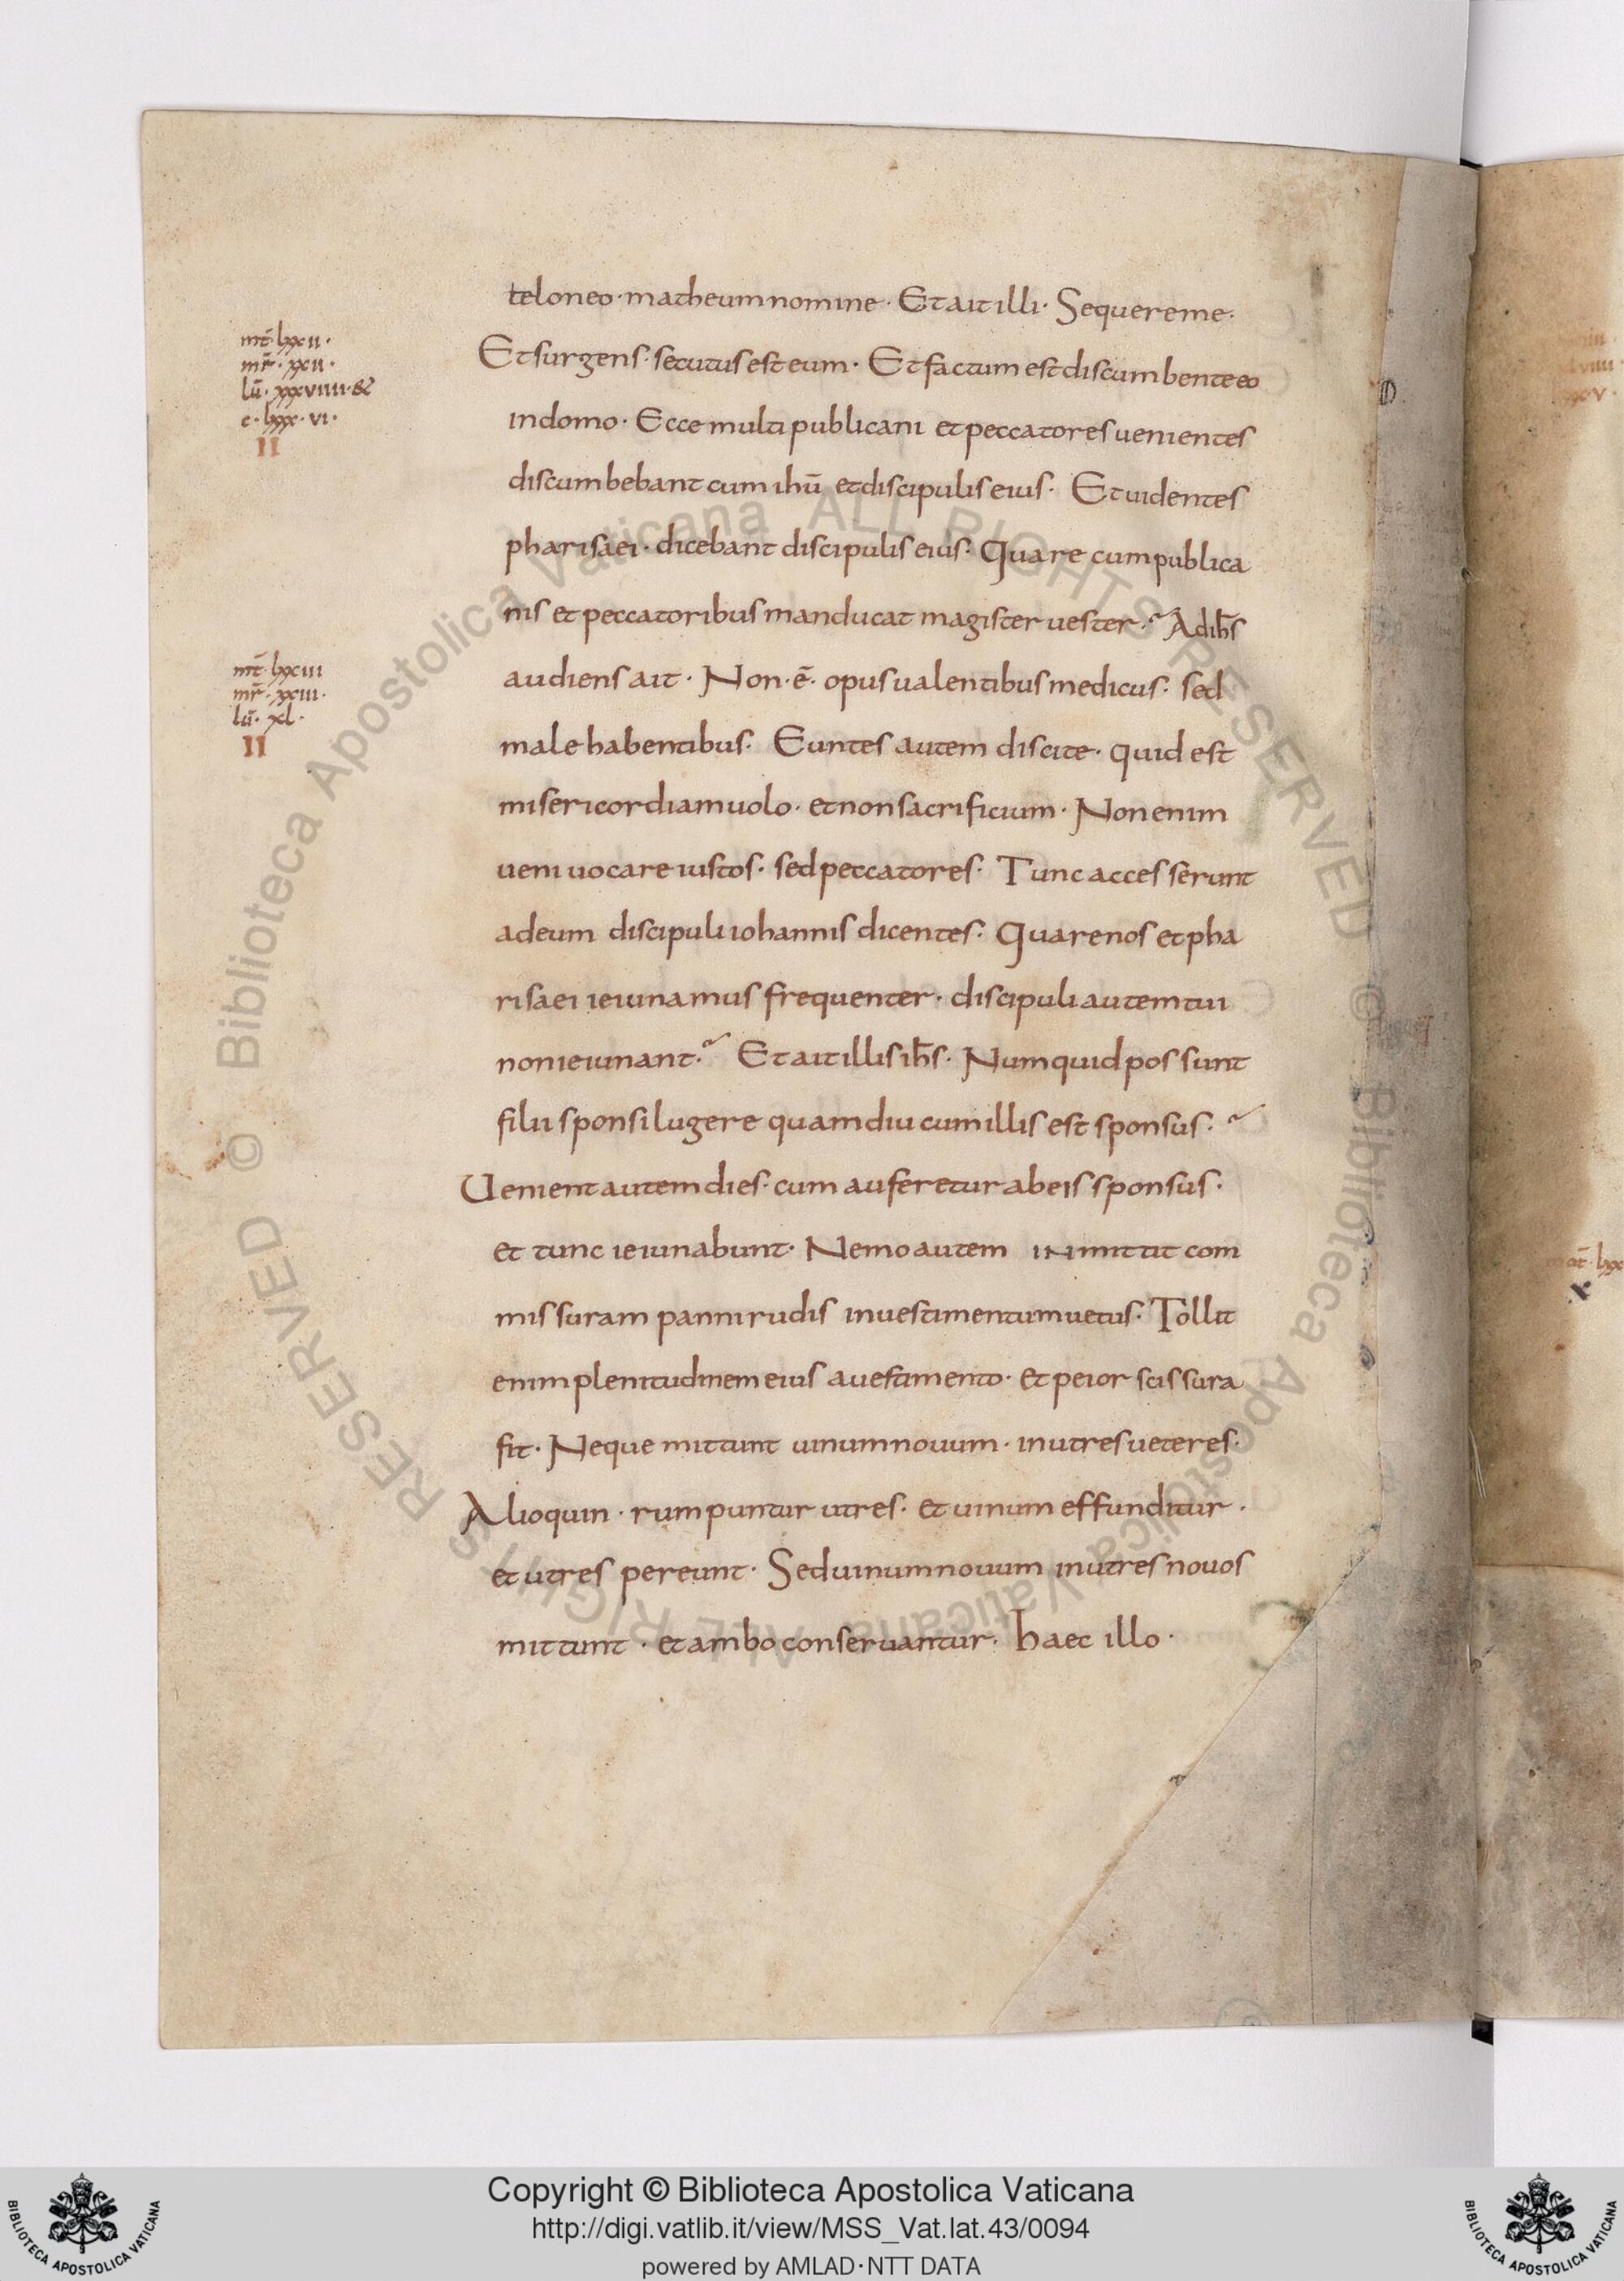 teloneo · matheum nomine · Et ait illi · Sequere me ·
mt̄ · lxxii ·
mr̄ · xxii ·
lū · xxxviiii · &
c · lxxx · vi ·
II
Et surgens · secutus est eum · Et factum est discumbente eo
in domo · Ecce multi publicani et peccatores uenientes
discumbebant cum ihū et discipulis eius · Et uidentes
pharisaei · dicebant discipulis eius · Quare cum publica
nis et peccatoribus manducat magister uester ? At ih̄s
mt̄ · lxxiii
mr̄ · xxiii ·
lū · xl ·
II
audiens ait · Non · ē · opus ualentibus medicus · sed
male habentibus · Euntes autem discite · quid est
misericordiam uolo · et non sacrificium · Non enim
ueni uocare iustos · sed peccatores · Tunc accesserunt
ad eum discipuli iohannis dicentes · Quare nos et pha
risaei ieiunamus frequenter · discipuli autem tui
non ieiunant ? Et ait illis ih̄s · Numquid possunt
filii sponsi lugere quamdiu cum illis est sponsus ?
Uenient autem dies · cum auferetur ab eis sponsus ·
et tunc ieiunabunt · Nemo autem inmittit com
missuram panni rudis in uestimentum uetus · Tollit
enim plenitudinem eius a uestimento · et peior scissura
fit · Neque mittunt uinum nouum · in utres ueteres ·
Alioquin · rumpuntur utres · et uinum effunditur ·
et utres pereunt · Sed uinum nouum in utres nouos
mittunt · et ambo conseruantur · haec illo ·
Copyright © Biblioteca Apostolica Vaticana
http://digi.vatlib.it/view/MSS_Vat.lat.43/0094
powered by AMLAD·NTT DATA
BIBLIOTECA APOSTOLICA VATICANA
BIBLIOTECA APOSTOLICA VATICANA
© Biblioteca Apostolica Vaticana ALL RIGHTS RESERVED © Biblioteca Apostolica Vaticana ALL RIGHTS RESERVED